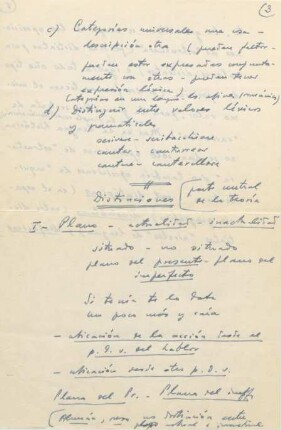 (3
c) Categorías universales una vez
descripción otra (pueden faltar
pueden estar expresadas conjunta-
mente con otras - pueden tener
expresión léxica)
Categorías en una lengua
d) Distinguir entre valores léxicos
y gramaticales
scrivere - scribacchiare
cantar - canturrear
cantare - canterellare
Distinciones (parte central
de la teoría
I - Plano - actualidad - inactualidad
situado - no situado
plano del presente - plano del
imperfecto
Si tenía te la daba
un poco más y caía
- ubicación de la acción desde el
p. d. v. del hablar
- ubicación desde otro p. d. v.
Plano del Pr. - Plano del imperf.
no distinción entre
plano actual e inactual